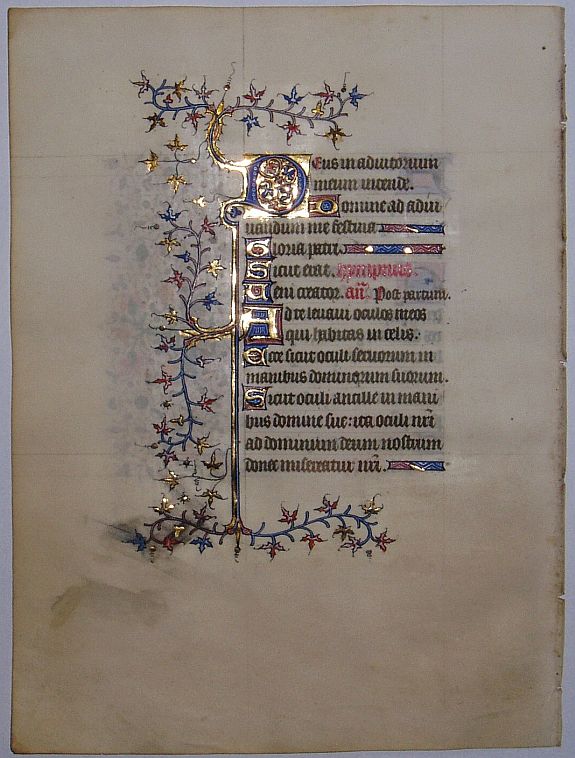 Deus in adiutorium
meum intende.
Domine ad adiu
uandum me festina
Gloria patri.
Sicut erat. hympnus.
Ueni creator. añ. Post partum.
Ad te leuaui oculos meos
qui habitas in celis.
Ecce sicut oculi seruorum in
manibus dominorum suorum.
Sicut oculi ancille in mani
bus domine sue: ita oculi nr̃i
ad dominum deum nostrum
donec misereatur nr̃i.